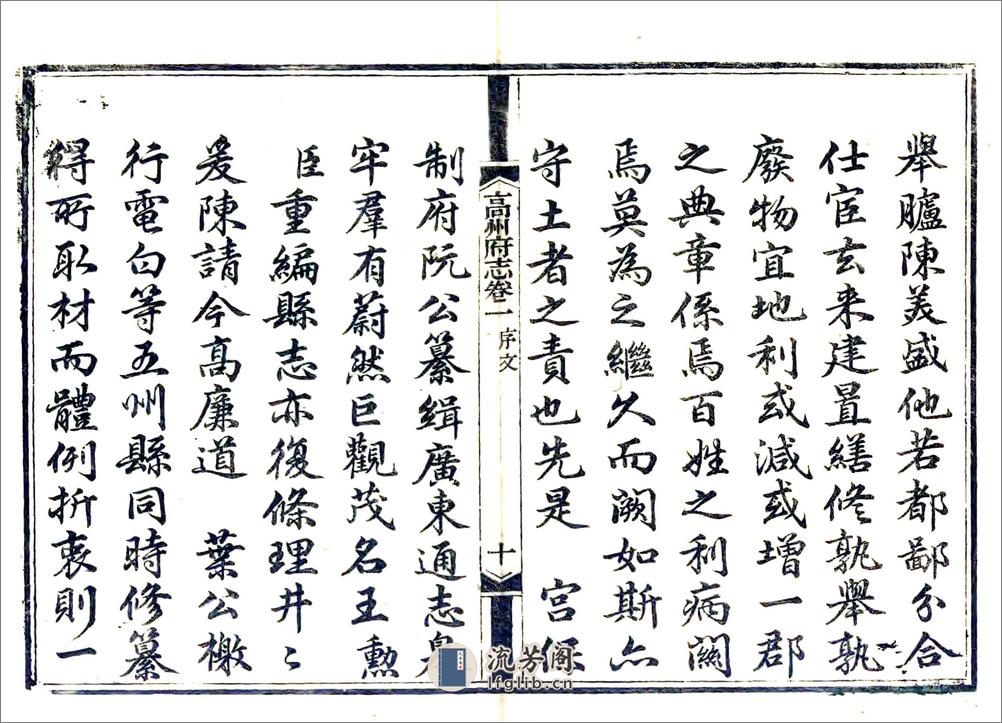 舉臚陳美盛他若都鄙分合
仕宦玄来建置繕修孰舉孰
廢物宜地利或減或增一郡
之典章係焉百姓之利病關
焉莫為之繼久而闕如斯亦
守土者之責也先是 宮保
高州府志卷二 序文 十
制府阮公纂緝廣東通志
牢羣有蔚然巨觀茂名王勲
臣重編縣志亦復條理井〻
爰陳請今高廉道 葉公檄
行電白等五州縣同時修纂
得所取材而體例折衷則一
流芳阁
lfglib.cn